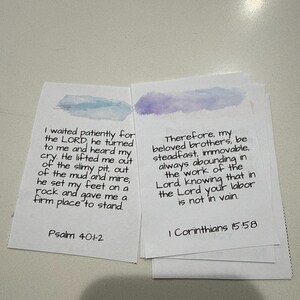 I waited patiently for
the LORD; he turned
to me and heard my
cry. He lifted me out
of the slimy pit, out
of the mud and mire;
he set my feet on a
rock and gave me a
firm place to stand.
Psalm 40:1-2
Therefore, my
beloved brothers, be
steadfast, immovable,
always abounding in
the work of the
Lord, knowing that in
the Lord your labor
is not in vain.
1 Corinthians 15:58